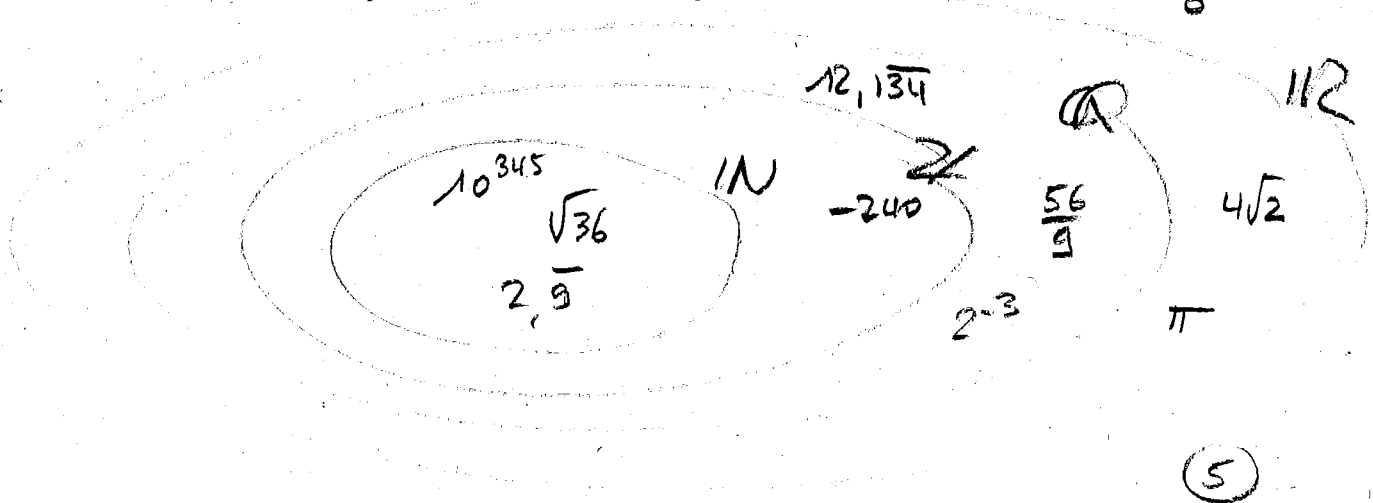 12,1\overline{34}
ℚ
ℝ
10^{345}
ℕ
ℤ
√36
-240
\frac{56}{9}
4√2
2,\overline{9}
2^{-3}
π
5